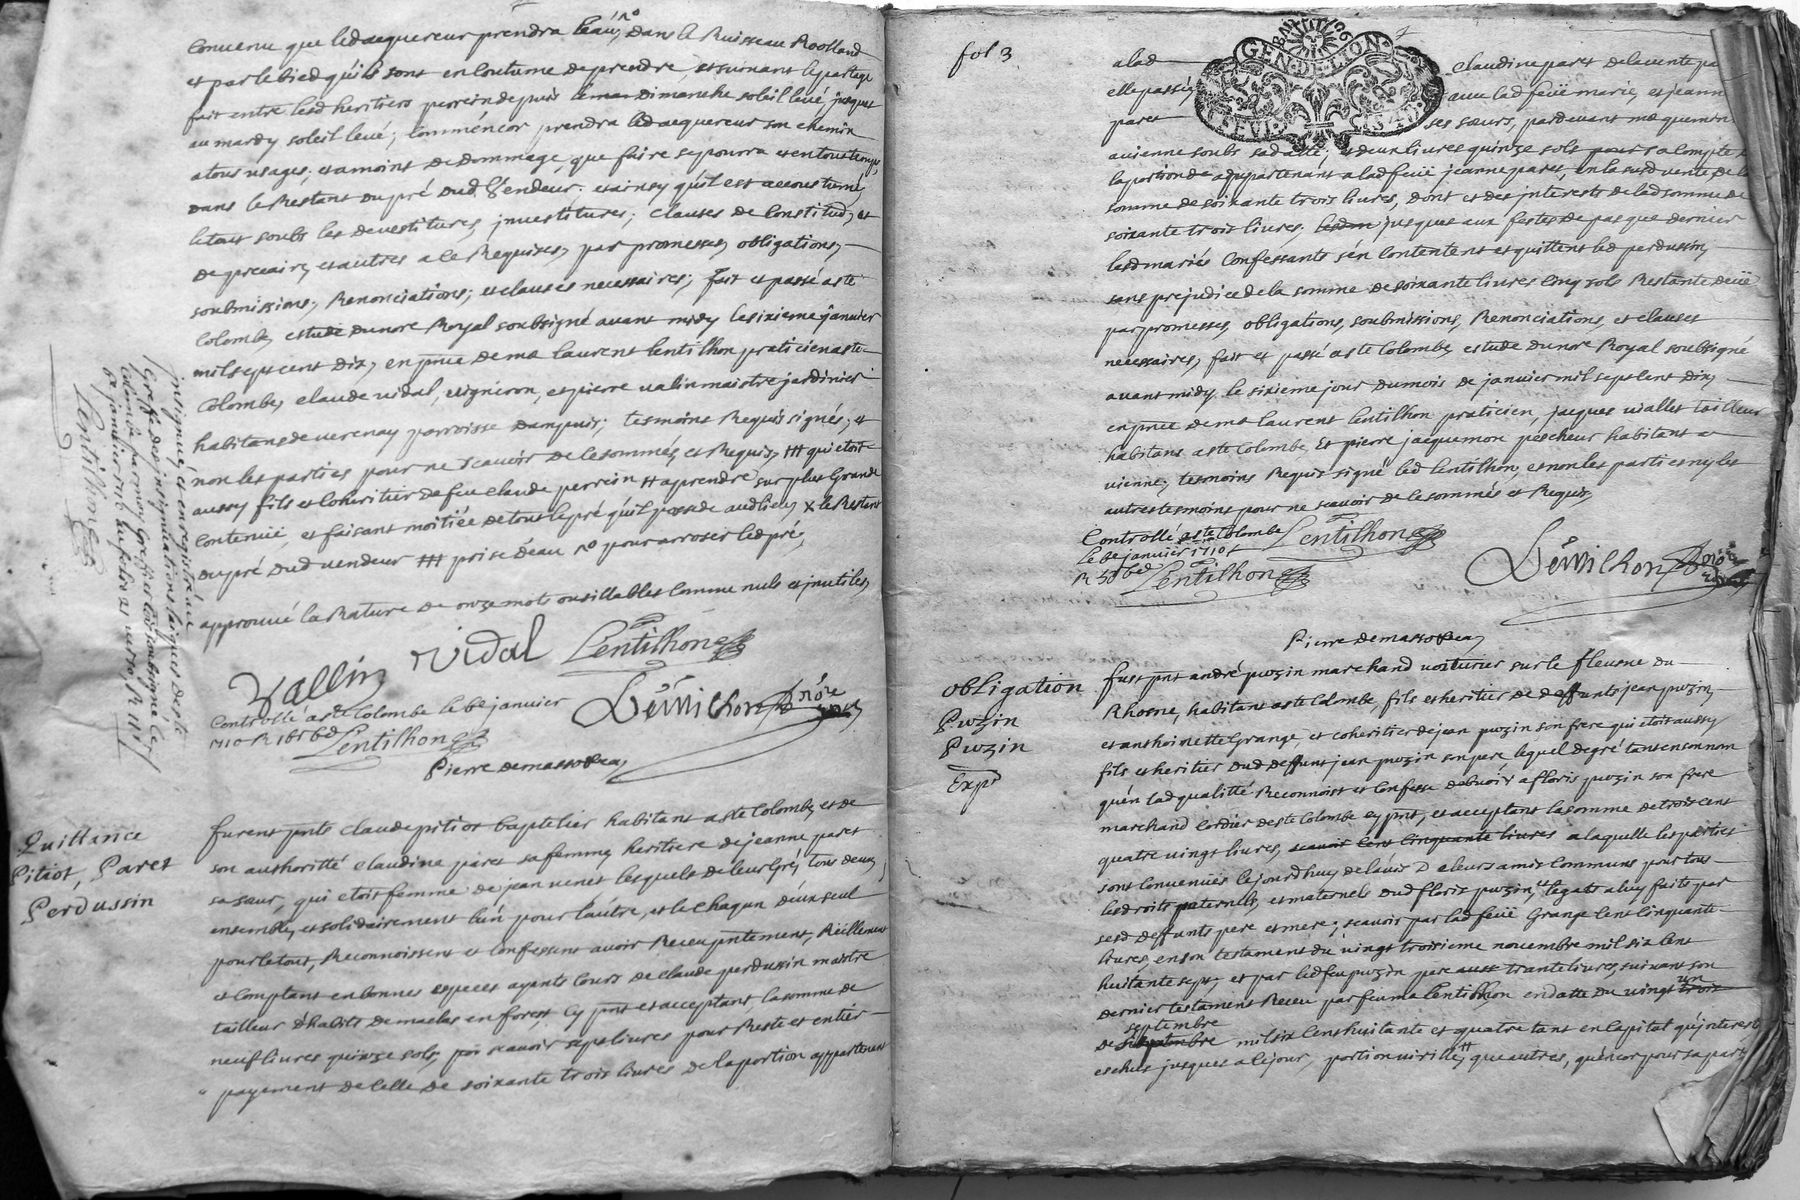 convenu que led acquereur prendra l'eau, no dans le Ruisseau Roolland
et par le bied quils sont en coutume de prendre, et suivant le partage
fait entre lesd heritiers perrein depuis le mar dimanche soleil levé, jusques
au mardy soleil levé; comme encor prendra led acquereur son chemin
a tous usages, et a moins de dommage, que faire se pourra et en tout temps,
dans le Restant du pré dud Vendeur; et ainsy qu'il est accoustumé,
le tout soubs les devestitures, jnvestitures, clauses de constitud, et
de precaire, et autres a ce Requises, par promesses, obligations,
soubmissions, Renonciations, et clauses necessaires; fait et passé a ste
Colombe, estude du nore Royal soubsigné avant midy le sixieme janvier
mil sept cent dix, en pnce de me laurent lentilhon praticien a ste
Colombe, claude vidal, vigneron, et pierre valin maistre jardinier
habitans de verenay parroisse dampuis; tesmoins Requis signés, et
non les parties pour ne scavoir de ce sommés et Requis, ### qui etoit
aussy fils et coheritier de feu claude perrein # a prendre sur plus Grande
contenuë, et faisant moitiée de tout le pré qu'il possede aud lieu, x le Restant
du pré dud vendeur ### prise d'eau no pour arroser led pré,
approuvé la Rature de onze mots ou sillables comme nuls et jnutiles,
Vallin Vidal Lentilhon
Controllé a ste Colombe le 6e janvier
1710 R 16s 6d Lentilhon
Lentilhon nore
Pierre demassossea
jnsigniié, et enregistré au
Greffe des jnsignations laiques de ste
Colombe par moy Greffier comis soubsigné le
de janvier 1710 au folio 21 verso,
Lentilhon
Quittance
Pitiot, Paret
Perdussin
furent pnts claude pitiot baptelier habitant a ste Colombe, et de
son authorité claudine paret sa femme, heritiere de jeanne paret
sa sœur, qui etoit femme de jean venet lesquels de leur Gré, tous deux,
ensemble, et solidairement l'un pour l'autre, et le chaqun d'eux seul
pour le tout, Reconnoissent et confessent avoir Receu pntement, Reëllement
et comptant en bonnes especes ayants cours de claude perdussin maistre
tailleur d'habits de maclas en forest cy pnt et acceptant, la somme de
neuf livres quinze sols, scavoir sept livres pour Reste et entier
payement de celle de soixante trois livres de la portion appartenant
fol 3
GEN·DE·LION·
a lad claudine paret de la vente pa
elle passée avec lad feüe marie, et jeanne
paret ses sœurs, pardevant me quemin
a vienne soubs sa datte; et deux livres quinze sols pour a compte
la portion de appartenant a lad feüe jeanne paret, en la susd vente de la
somme de soixante trois livres, dont et des jnterests de lad somme de
soixante trois livres, jusques aux festes de pasque dernier
lesd mariés confessants s'en contentent et quittent led perdussin,
sans prejudice de la somme de soixante livres cinq sols Restante deüe
par promesses, obligations, soubmissions, Renonciations, et clauses
necessaires, fait et passé a ste Colombe, estude du nore Royal soubsigné
avant midy le sixieme jour du mois de janvier mil sept cent dix,
en pnce de me laurent lentilhon praticien, jacques viallet tailleur
habitans a ste Colombe Et pierre jacquemon pescheur habitant a
vienne, tesmoins Requis signé led lentilhon, et non les parties ny les
autres tesmoins pour ne scavoir de ce sommés et Requis,
Controllé a ste Colombe Lentilhon
Le 6e janvier 1710
Lentilhon
Lentilhon nore
Pierre demassossea
obligation
Puzin
Puzin
Expé
fust pnt andré puzin marchand voiturier sur le fleusne du
Rhosne, habitant a ste Colombe, fils et heritier de deffunts jean puzin,
et anthoinette Grange, et coheritier de jean puzin son frere qui etoit aussy
fils et heritier dud deffunt jean puzin son pere lequel de gré tant en son nom
qu'en lad qualité Reconnoist et confesse debvoir a floris puzin son frere
marchand cordier de ste Colombe cy pnt, et acceptant la somme de trois cent
quatre vingt livres, scavoir cent cinquante livres a laquelle les parties
sont convenuës ce jourdhuy de l'avis D e leurs amis communs pour tous
les droits paternels, et maternels dud floris puzin, et legats a luy faits par
sesd deffunts pere et mere; scavoir par lad feüe Grange cent cinquante
livres, en son testament du vingt troisieme novembre mil six cent
huitante sept, et par led feu puzin pere aussy trante livres, suivant son
dernier testament Receu par feu me Lentilhon en datte du vingt un trois
septembre
de mil six cent huitante et quatre tant en capital qu'jnterests
escheus jusques a ce jour, portion virille, # que autres, qu'encor pour sa part